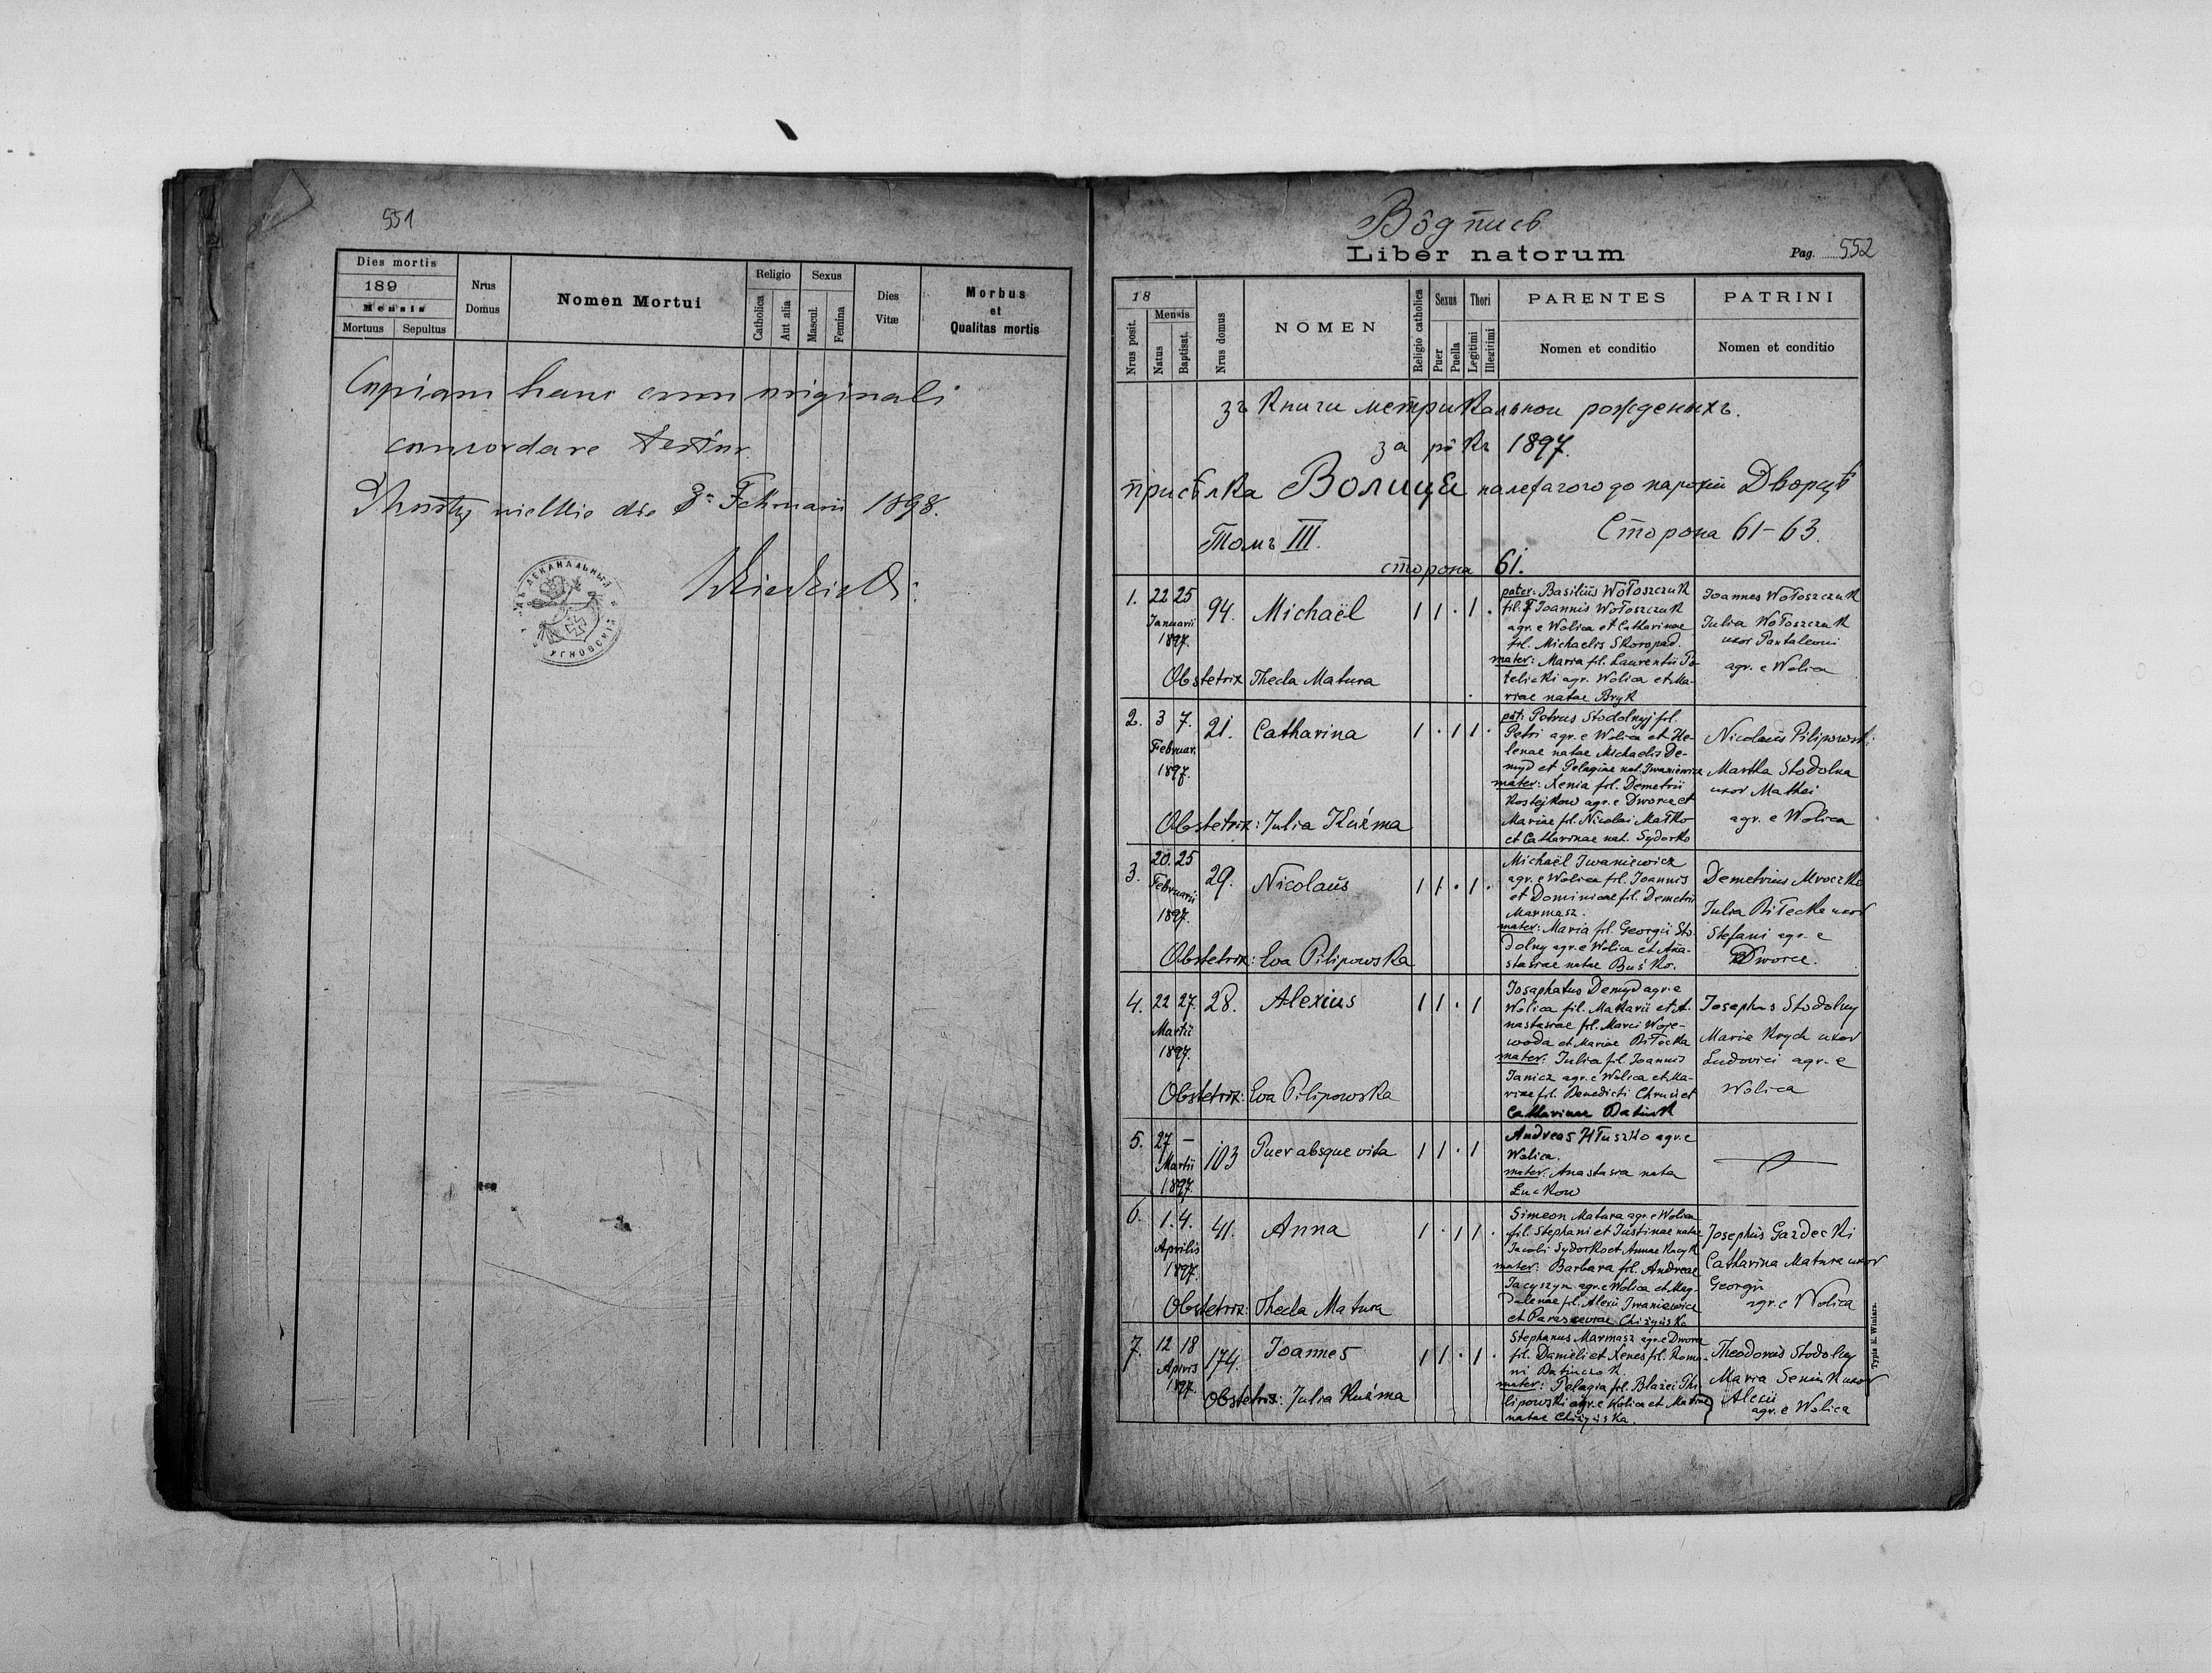 551
Dies mortis
189
Mensis
Mortuus Sepultus
Nrus Domus
Nomen Mortui
Religio
Catholica
Aut alia
Sexus
Mascul.
Femina
Dies Vitæ
Morbus
et
Qualitas mortis
Copiam hanc cum originali
concordare testor
wielkie die Februarii 1898.
ДЕКАНАЛЬНЫЙ
УГНОВСКІЙ
Вôдпись
Liber natorum
Pag. 552
18
Nrus posit.
Mensis
Natus
Baptisat.
Nrus domus
NOMEN
Religio catholica
Sexus
Puer
Puella
Thori
Legitimi
Illegitimi
PARENTES
Nomen et conditio
PATRINI
Nomen et conditio
зъ Книги метрикальнои рожденыхъ.
за рôкъ 1897.
присѣлка Волица належачого до парохіи Дворцѣ
Томъ III.
Сторона 61-63.
сторона 61.
1. 22 25 Januarii 1897. 94. Michaël 1 1 . 1 .
pater: Basilius Wołoszczuk
fil. † Joannis Wołoszczuk
agr. e Wolica et Catharinae
fil. Michaelis Skoropad.
mater: Maria fil. Laurentii Po-
telicki agr. Wolica et Ma-
riae natae Bryk
Joannes Wołoszczuk
Julia Wołoszczuk
uxor Pantaleoni
agr. e Wolica
Obstetrix Thecla Matura
2. 3 7. Februar. 1897. 21. Catharina 1 . 1 1 .
pat: Petrus Stodolnyj fil.
Petri agr. e Wolica et He-
lenae natae Michaelis De-
myd et Pelagiae nat. Iwaniewicz
mater: Xenia fil. Demetrii
Kostejkow agr. e Dworce et
Mariae fil. Nicolai Małko
et Catharinae nat. Sydorko
Nicolaus Pilipowski
Martha Stodolna
uxor Mathei
agr. e Wolica
Obstetrix: Julia Kuźma
3. 20. 25 Februarii 1897. 29. Nicolaus 1 1 . 1 .
Michaël Iwaniewicz
agr. e Wolica fil. Joannis
et Dominicae fil. Demetrii
Marmasz.
mater: Maria fil. Georgii Sto-
dolny agr. e Wolica et Ana-
stasiae natae Buśko.
Demetrius Mroczko
Julia Biłecka uxor
Stefani agr. e
Dworce.
Obstetrix: Eva Pilipowska
4. 22 27. Martii 1897. 28. Alexius 1 1 . 1
Josaphatus Demyd agr. e
Wolica fil. Makarii et A-
nastasiae fil. Marci Woje-
woda et Mariae Biłecka
mater: Julia fil. Joannis
Janicz agr. e Wolica et Ma-
riae fil. Benedicti Chruń et
Catharinae Batiuk
Josephus Stodolny
Maria Krych uxor
Ludovici agr. e
Wolica
Obstetrix: Eva Pilipowska
5. 27 — Martii 1897. 103 Puer absque vita 1 1 . 1
Andreas Hłuszko agr. e
Wolica.
mater: Anastasia nata
Łuckow
6. 1. 4. Aprilis 1897. 41. Anna 1 . 1 1 .
Simeon Matura agr. e Wolica
fil. Stephani et Justinae natae
Jacobi Sydorko et Annae Kacyk
mater: Barbara fil. Andreae
Jacyszyn agr. e Wolica et Mag-
dalenae fil. Alexii Iwaniewicz
et Parasceviae Chiżyńska
Josephus Gazdecki
Catharina Matura uxor
Georgii
agr. e Wolica
Obstetrix: Thecla Matura
7. 12 18 Aprilis 1897. 174. Joannes 1 1 . 1 .
Stephanus Marmasz agr. e Dworce
fil. Danieli et Xenes fil. Roma-
ni Batiuczok.
mater: Pelagia fil. Blazei Phi-
lipowski agr. e Wolica et Mariae
natae Chiżyńska.
Theodorus Stodolny
Maria Seniuk uxor
Alexii
agr. e Wolica
Obstetrix: Julia Kuźma
Typis E. Winiarz.